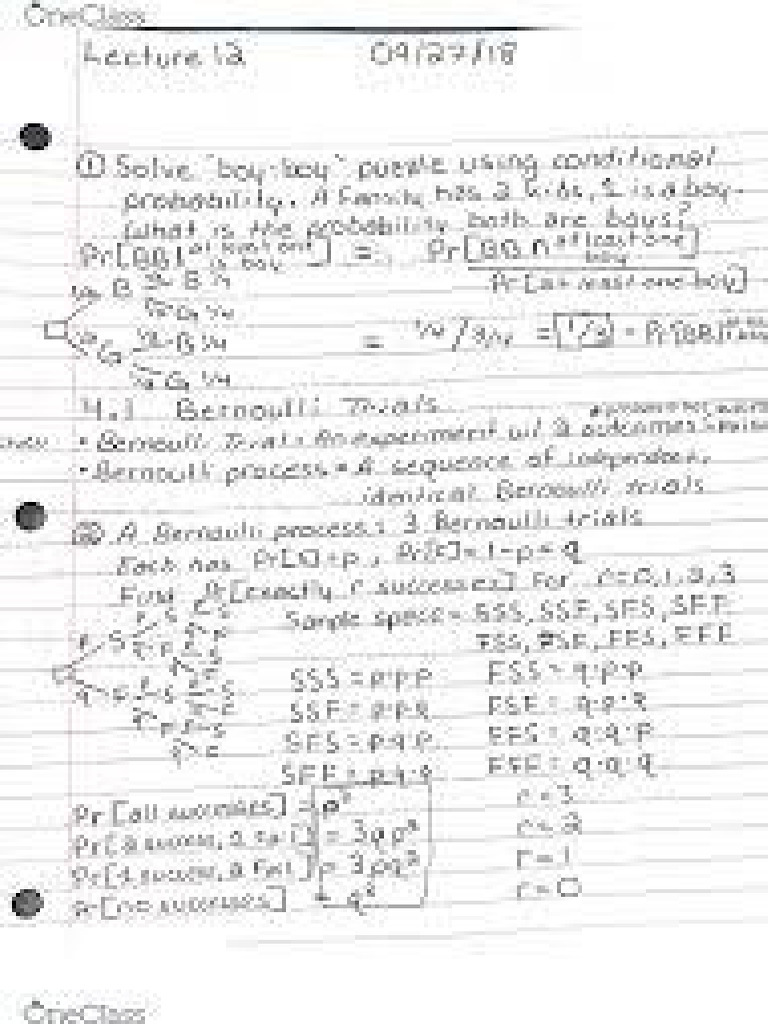 OneClass
Lecture 12 09/27/18
① Solve "boy-boy" puzzle using conditional
probability. A family has 2 kids, 1 is a boy.
What is the probability both are boys?
Pr[BB | at least one is boy] = Pr[BB ∩ at least one boy]
Pr[at least one boy]
1/2 B 1/2 B 1/4
1/2 G 1/4
1/2 G 1/2 B 1/4
1/2 G 1/4
= 1/4 / 3/4 = 1/3 = Pr[BB|
4.1 Bernoulli Trials
• Bernoulli Trial = An experiment w/ 2 outcomes
• Bernoulli process = A sequence of independent,
identical Bernoulli trials
A Bernoulli process: 3 Bernoulli trials
Each has Pr[s]=p, Pr[F]=1-p=q
Find Pr[exactly r successes] for r=0,1,2,3
Sample space = SSS, SSF, SFS, SFF
FSS, FSF, FFS, FFF
SSS = p·p·p FSS = q·p·p
SSF = p·p·q FSF = q·p·q
SFS = p·q·p FFS = q·q·p
SFF = p·q·q FFF = q·q·q
Pr[all successes] = p³ r=3
Pr[2 success, 1 fail] = 3qp² r=2
Pr[1 success, 2 fail] = 3pq² r=1
Pr[no successes] = q³ r=0
OneClass